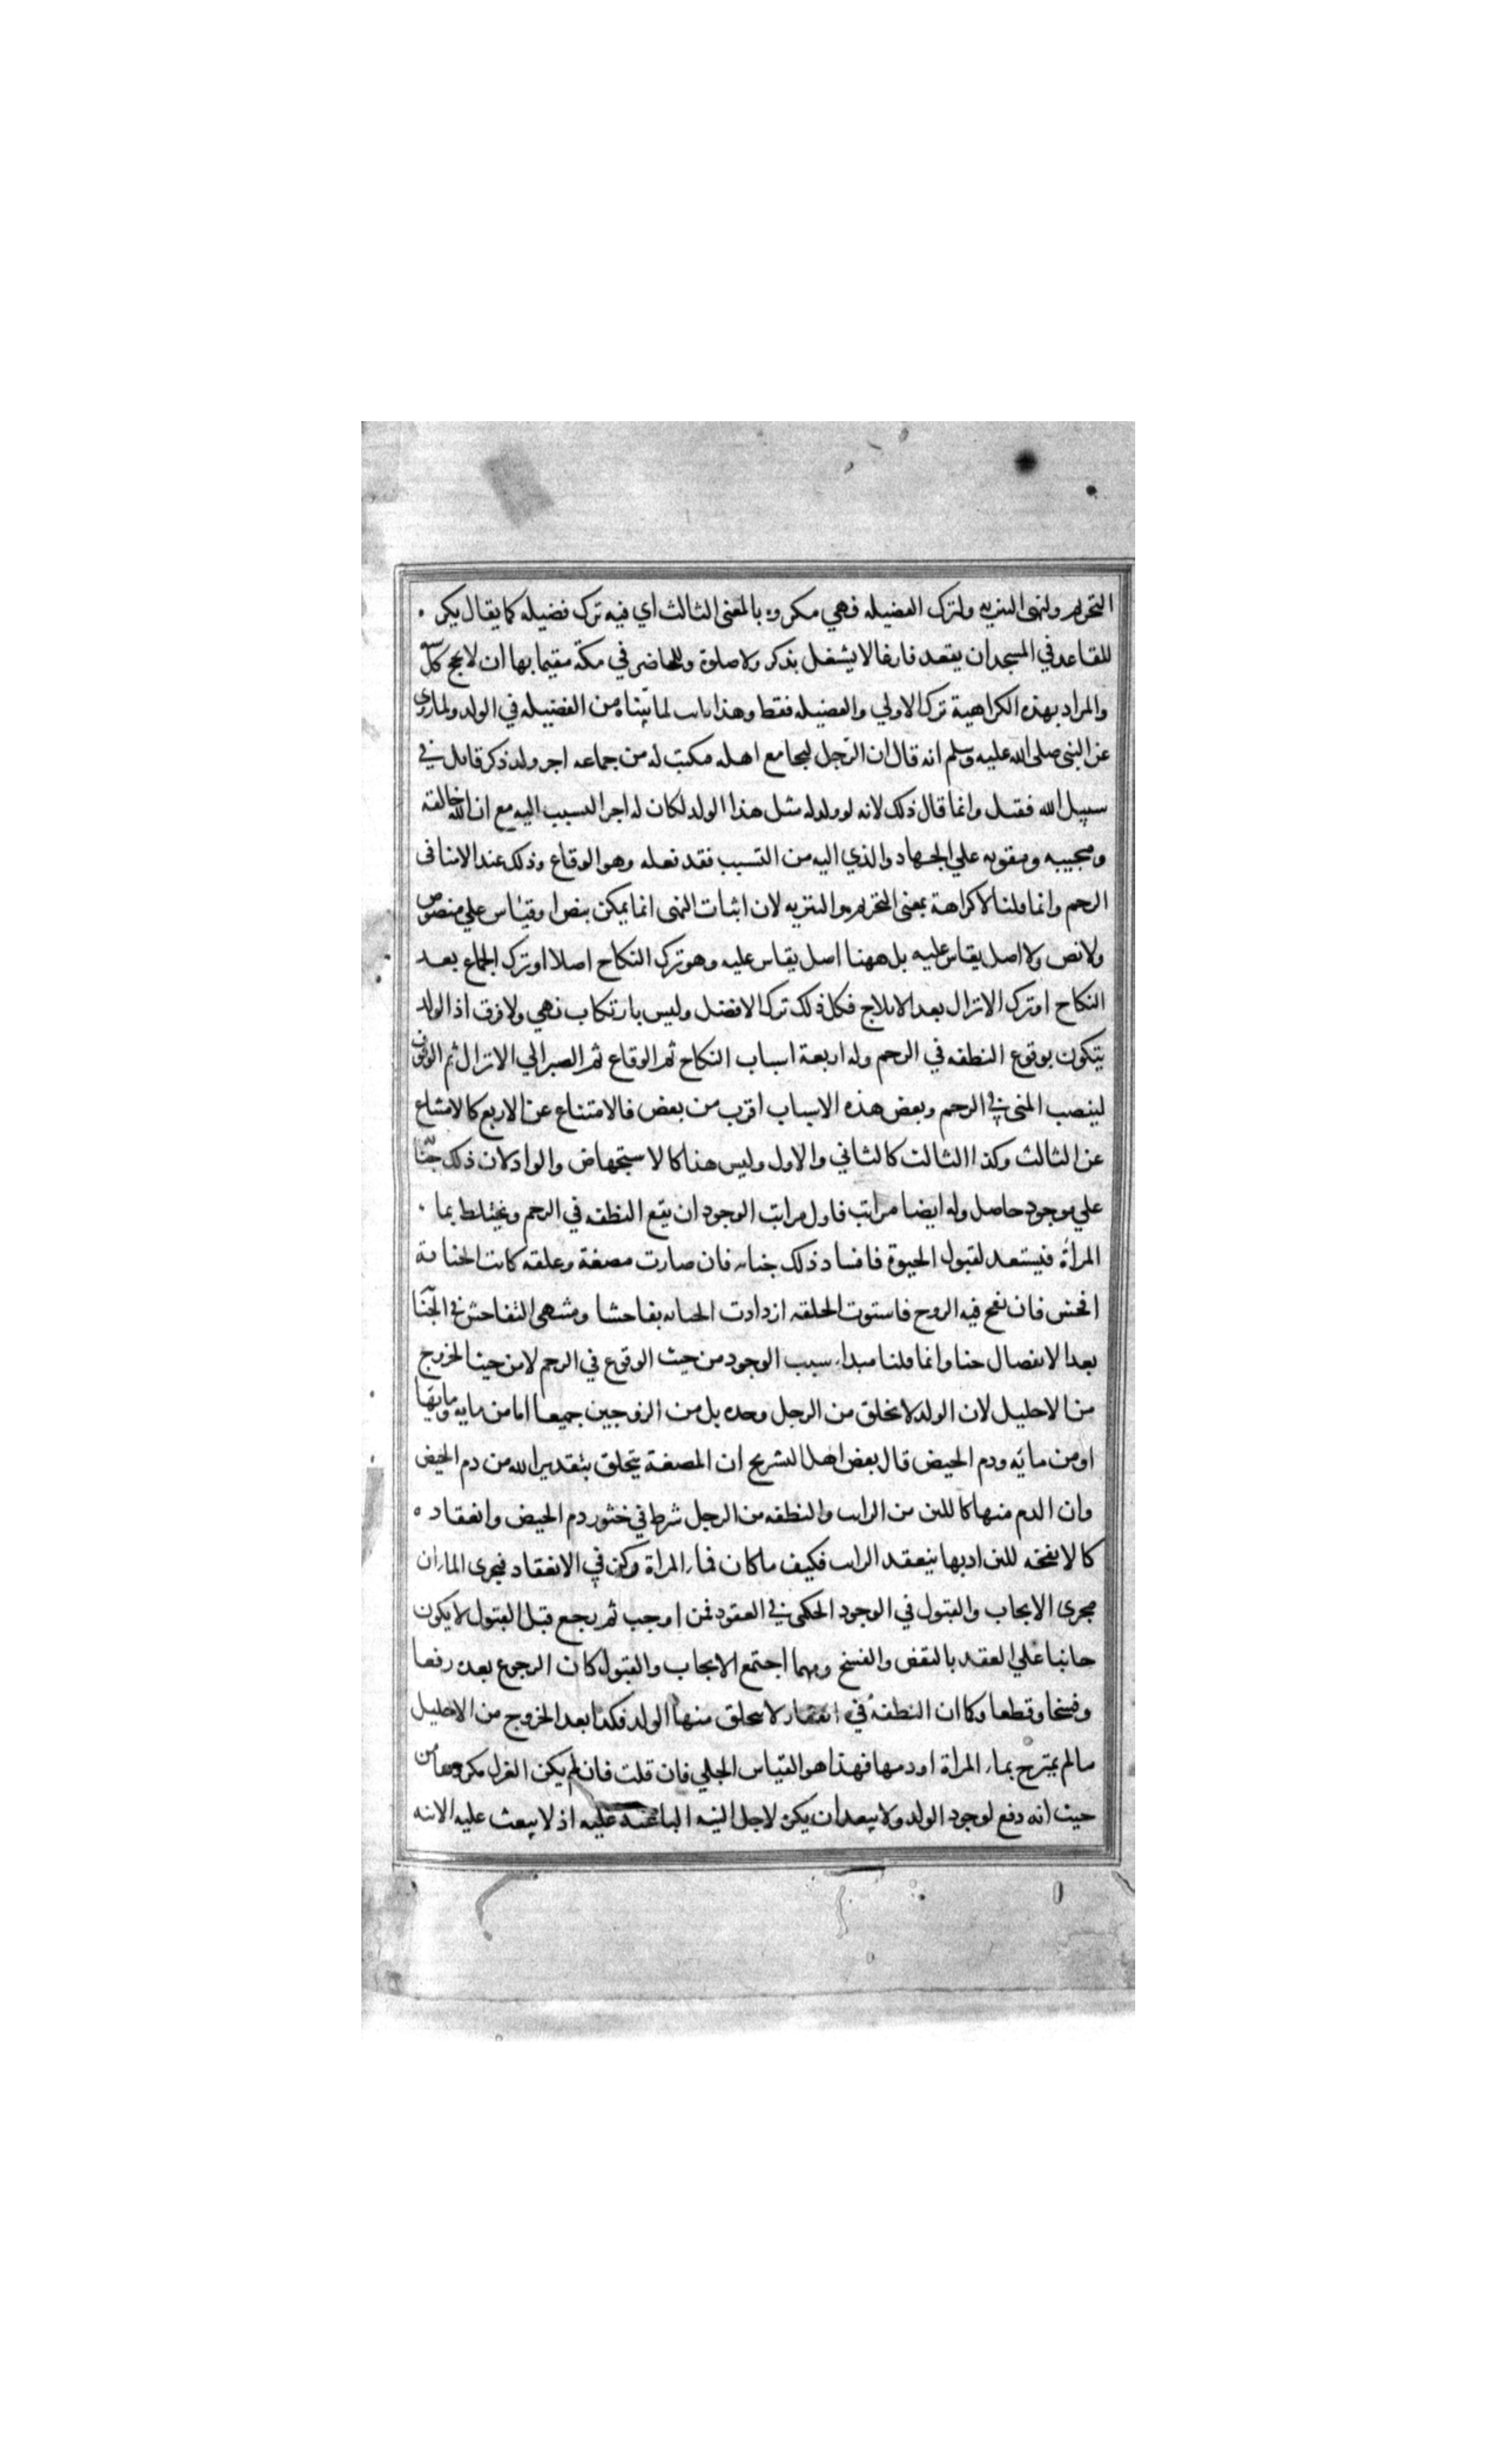 التحريم ولنهى التنزيه ولترك الفضيله فهي مكروه بالمعنى الثالث اي فيه ترك فضيله كما يقال يكره
للقاعد في المسجد ان يقعد فارغا لا يشغل بذكر ولا صلوة وللحاضر في مكة مقيما بها ان لا يحج كل
والمراد بهذه الكراهية ترك الاولي والفضيله فقط وهذا ثابت لما بيّناه من الفضيله في الولد ولما روى
عن النبى صلى الله عليه وسلم انه قال ان الرّجل ليجامع اهله فيكتب له من جماعه اجر ولد ذكر قاتل في
سبيل الله فقتل وانما قال ذلك لانه لو ولد له مثل هذا الولد لكان له اجر التسبب اليه مع ان الله خالقه
ومحييه ومقويه علي الجهاد والذي اليه من التسبب فقد فعله وهو الوقاع وذلك عند الامنا في
الرحم وانما قلنا لا كراهة بمعنى التحريم والتنزيه لان اثبات النهى انما يمكن بنص او قياس علي منصوص
ولا نص ولا اصل يقاس عليه بل ههنا اصل يقاس عليه وهو ترك النكاح اصلا او ترك الجماع بعد
النكاح او ترك الانزال بعد الايلاج فكل ذلك ترك الافضل وليس بارتكاب نهي ولا فرق اذ الولد
يتكون بوقوع النطفه في الرحم وله اربعة اسباب النكاح ثم الوقاع ثم الصبر الي الانزال ثم الوقوف
لينصب المنى في الرحم وبعض هذه الاسباب اقرب من بعض فالامتناع عن الاربع كالامتناع
عن الثالث وكذا الثالث كالثاني والاول وليس هذا كالاستجهاض والواد لان ذلك
علي موجود حاصل وله ايضا مراتب فاول مراتب الوجود ان يقع النطفه في الرحم ويختلط بما
المرأة فيستعد لقبول الحيوة فافساد ذلك جنايه فان صارت مضغة وعلقه كانت الجناية
افحش فان نفخ فيه الروح فاستوت الخلقه ازدادت الجنايه تفاحشا ومنتهى التفاحش في
بعد الانفصال حيا وانما قلنا مبداء سبب الوجود من حيث الوقوع في الرحم لا من حيث الخروج
من الاحليل لان الولد لا يخلق من الرجل وحده بل من الزوجين جميعا اما من مايه ومايها
او من مايه ودم الحيض قال بعض اهل التشريح ان المضغة يتخلق بتقدير الله من دم الحيض
وان الدم منها كاللبن من الرايب والنطفه من الرجل شرط في خثور دم الحيض وانعقاده
كالانفحة للبن اذ بها ينعقد الرايب فكيف ما كان فماء المراة ركن في الانعقاد فيجرى الماءان
مجرى الايجاب والقبول في الوجود الحكمى في العقود فمن اوجب ثم رجع قبل القبول لا يكون
جانيا علي العقد بالنقض والفسخ ومهما اجتمع الايجاب والقبول كان الرجوع بعده رفعا
وفسخا وقطعا وكما ان النطفة في لا يتخلق منها الولد فكذا بعد الخروج من الاحليل
مالم يمتزج بماء المراة او دمها فهذا هو القياس الجلي فان قلت فان لم يكن العزل مكروها من
حيث انه دفع لوجود الولد ولا يبعد ان يكره لاجل النية الباعثة عليه اذ لا يبعث عليه الا نية